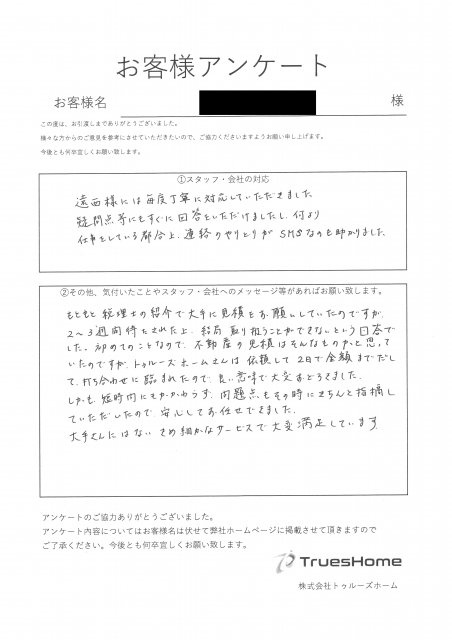 お客様アンケート
お客様名 様
この度は、お引渡しまでありがとうございました。
様々な方からのご意見を参考にさせていただきたいので、ご協力くださいますようお願い申し上げます。
今後とも何卒宜しくお願い致します。
①スタッフ・会社の対応
遠西様には毎度丁寧に対応していただきました
疑問点等にもすぐに回答をいただけましたし、何より
仕事をしている都合上、連絡のやりとりが SMSなのも助かりました。
②その他、気付いたことやスタッフ・会社へのメッセージ等があればお願い致します。
もともと税理士の紹介で大手に見積をお願いしていたのですが、
2〜3週間待たされた上、結局 取り扱うことができないという回答で
した。初めてのことなので、不動産の見積はそんなものかと思って
いたのですが、トゥルーズホームさんは依頼して2日で金額までだし
て、打ち合わせに臨まれたので、良い意味で大変おどろきました。
しかも、短時間にもかかわらず、問題点もその時にきちんと指摘し
ていただしたので、安心してお任せできました。
大手さんにはない きめ細かなサービスで大変満足しています
アンケートのご協力ありがとうございました。
アンケート内容についてはお客様名は伏せて弊社ホームページに掲載させて頂きますので
ご了承ください。今後とも何卒宜しくお願い致します。
TruesHome
株式会社トゥルーズホーム